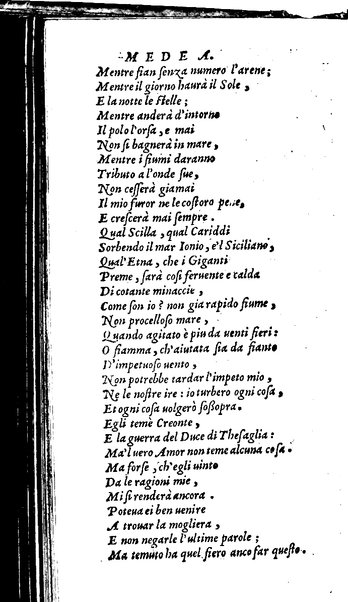 MEDEA.
Mentre ſian ſenza numero l'arene;
Mentre il giorno haurà il Sole,
E la notte le ſtelle;
Mentre anderà d'intorno
Il polo l'orſa, e mai
Non ſi bagnerà in mare,
Mentre i fiumi daranno
Tributo a l'onde ſue,
Non ceſſerà giamai
Il mio furor ne le coſtoro pene,
E creſcerà mai ſempre.
Qual Scilla, qual Cariddi
Sorbendo il mar Ionio, e'l Siciliano,
Qual'Etna, che i Giganti
Preme, ſarà coſi feruente e calda
Di cotante minaccie,
Come ſon io? non gia rapido fiume,
Non procelloſo mare,
Quando agitato è piu da uenti fieri:
O fiamma, ch'aiutata ſia da fianto
D'impetuoſo uento,
Non potrebbe tardar l'impeto mio,
Ne le noſtre ire: io turbero ogni coſa,
Et ogni coſa uolgerò ſoßopra.
Egli temè Creonte,
E la guerra del Duce di Theſaglia:
Ma'l uero Amor non teme alcuna coſa.
Ma forſe, ch'egli uinto
Da le ragioni mie,
Mi ſi renderà ancora.
Poteua ei ben uenire
A trouar la mogliera,
E non negarle l'ultime parole;
Ma temuto ha quel fiero anco far queſto.